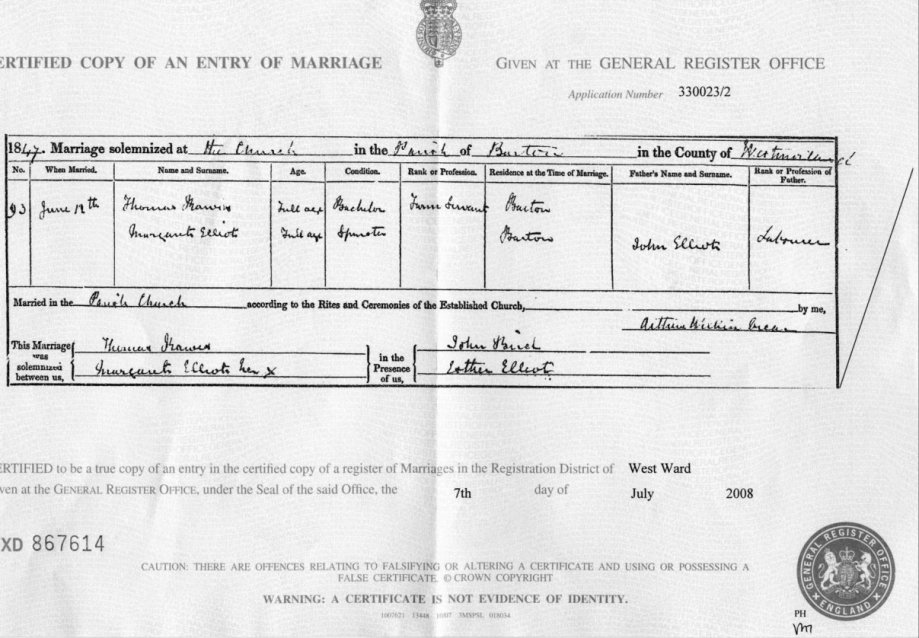 ERTIFIED COPY OF AN ENTRY OF MARRIAGE
GIVEN AT THE GENERAL REGISTER OFFICE
Application Number 330023/2
1847. Marriage solemnized at the Church in the Parish of Barton in the County of Westmorland
No. When Married. Name and Surname. Age. Condition. Rank or Profession. Residence at the Time of Marriage. Father's Name and Surname. Rank or Profession of Father.
93 June 12th Thomas Full age Bachelor Farm Servant Barton
Margaret Elliot Full age Spinster Barton John Elliot Labourer
Married in the Parish Church according to the Rites and Ceremonies of the Established Church, by me,
This Marriage was solemnized between us, Thomas
Margaret Elliot her x
in the Presence of us, John
Esther Elliot
ERTIFIED to be a true copy of an entry in the certified copy of a register of Marriages in the Registration District of West Ward
ven at the GENERAL REGISTER OFFICE, under the Seal of the said Office, the 7th day of July 2008
XD 867614
CAUTION: THERE ARE OFFENCES RELATING TO FALSIFYING OR ALTERING A CERTIFICATE AND USING OR POSSESSING A
FALSE CERTIFICATE. © CROWN COPYRIGHT
WARNING: A CERTIFICATE IS NOT EVIDENCE OF IDENTITY.
GENERAL REGISTER OFFICE
ENGLAND
PH